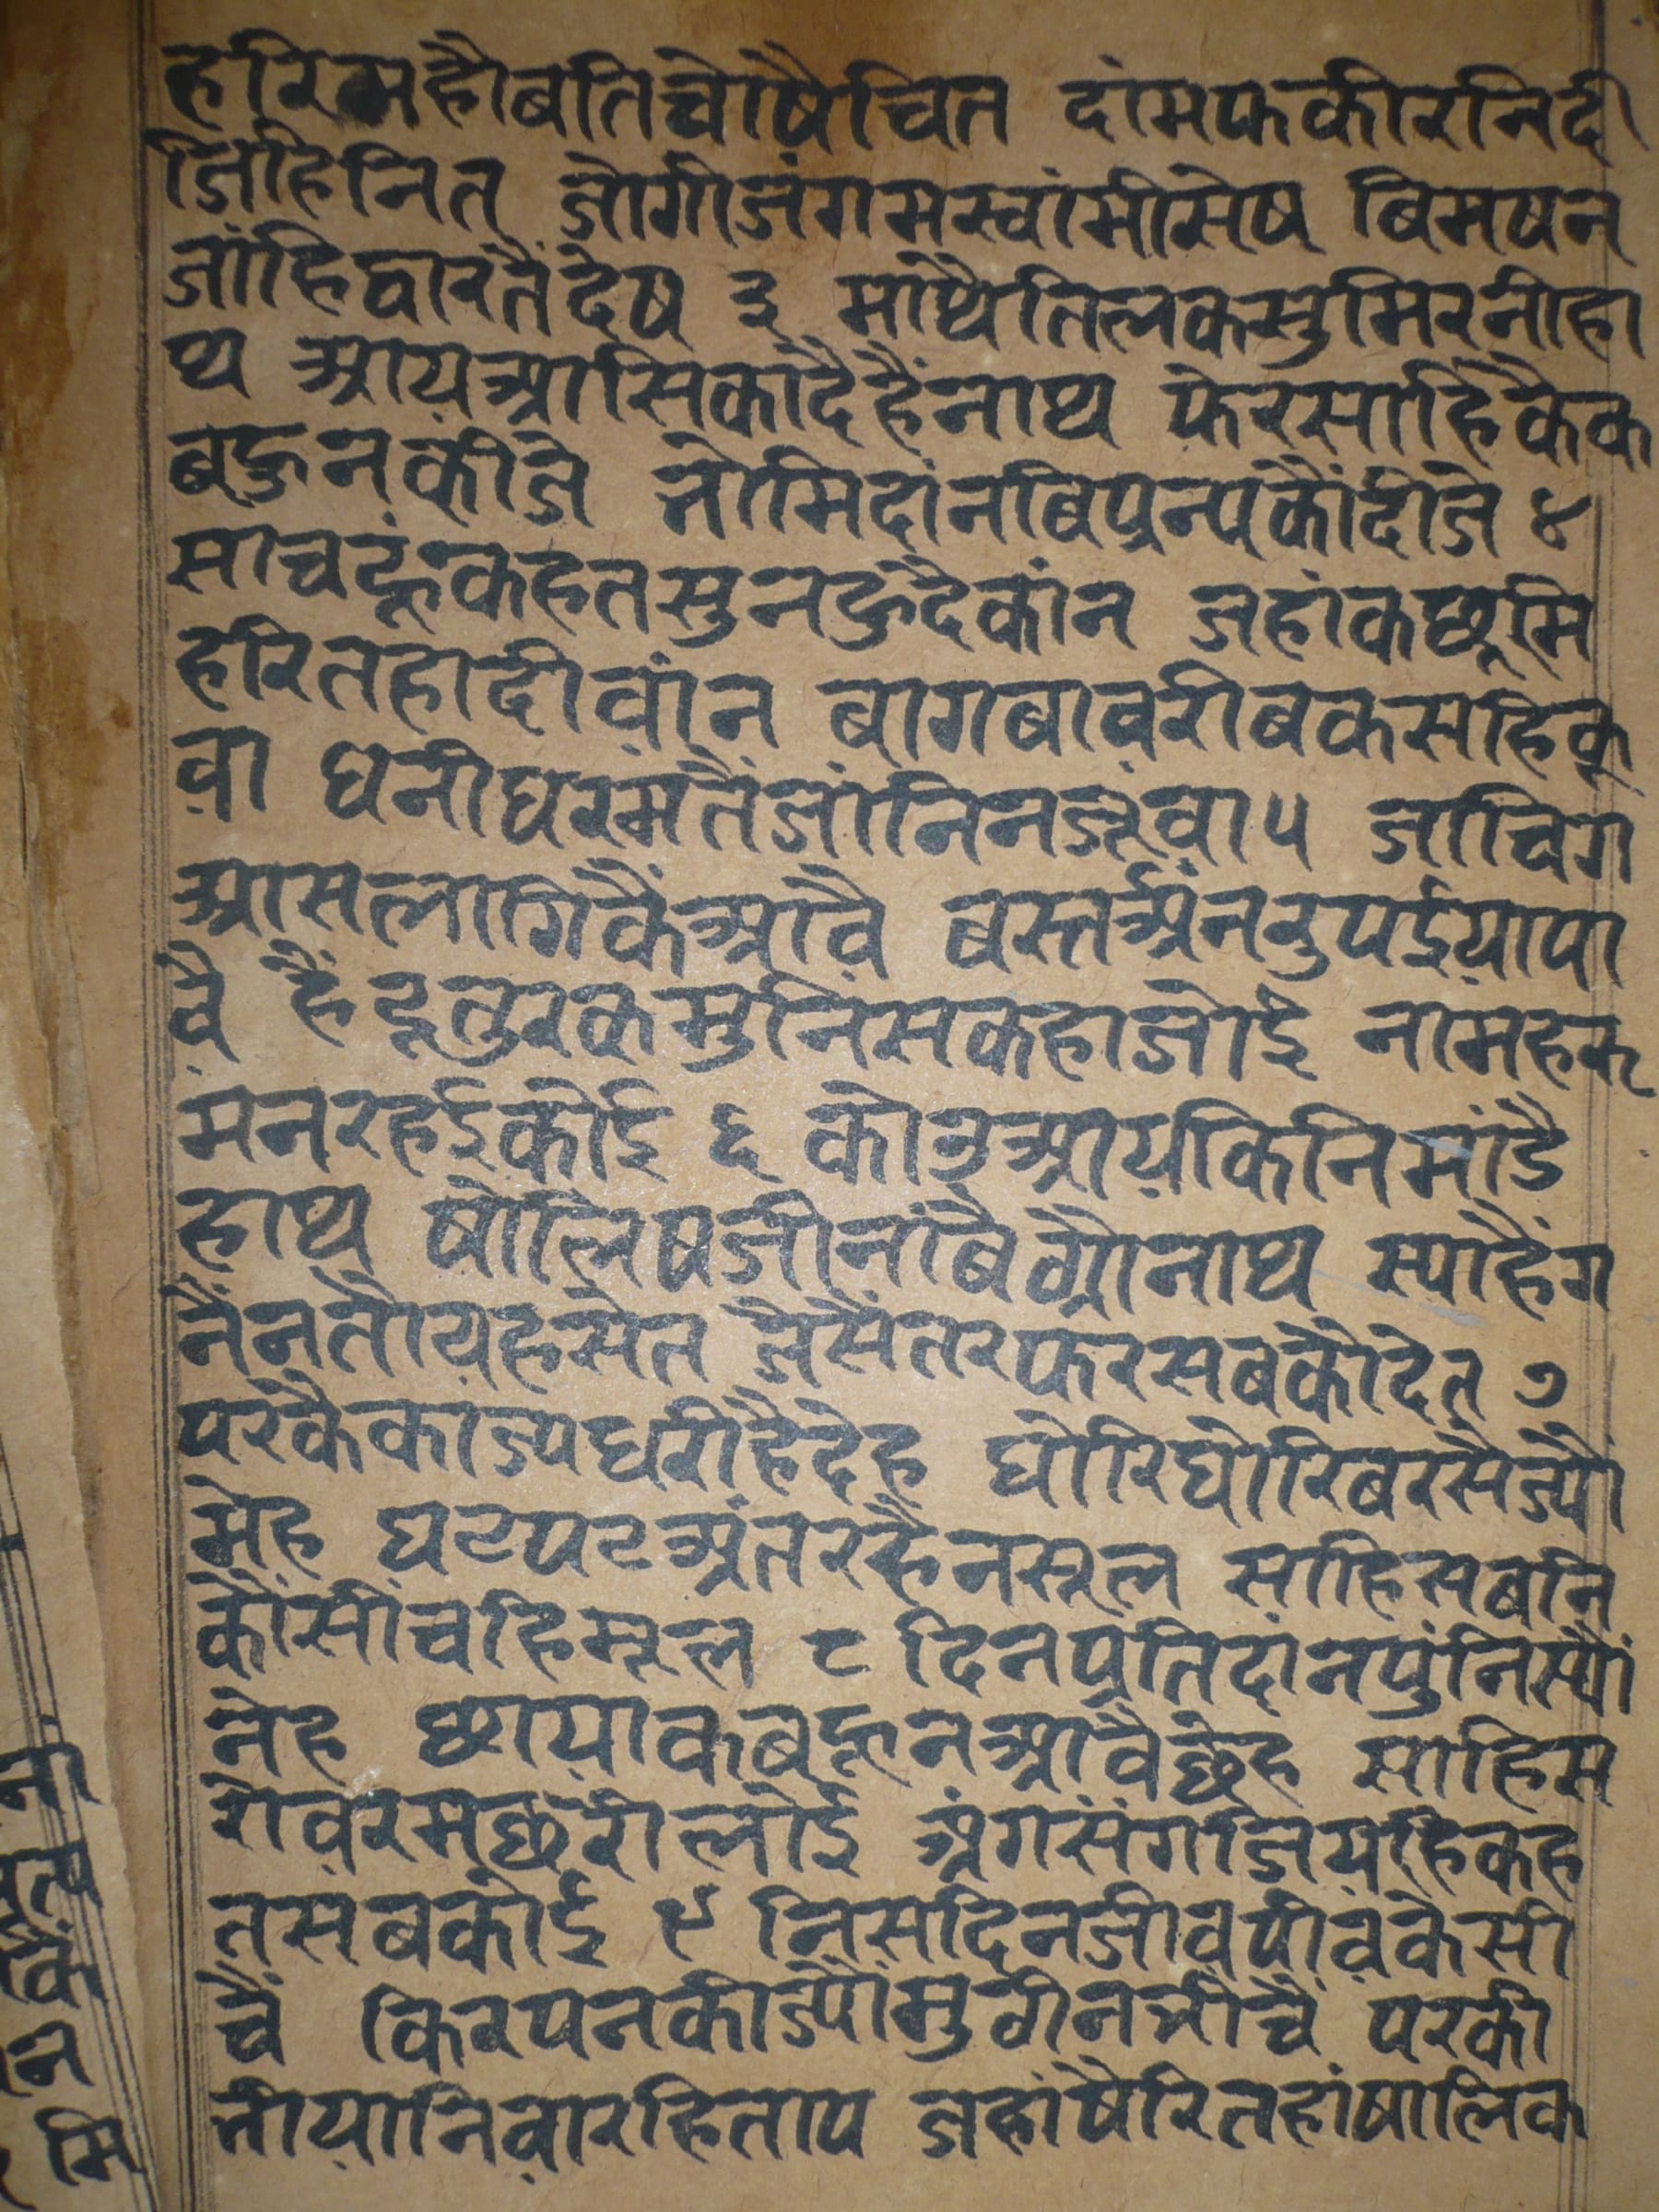 हरिमहौबतिचोषैचित दांमफकीरनिदी
जिहिनित जोगीजंगमस्वांमीसेष बिमषन
जांहिद्वारतैंदेष ३ माथैतिलकसुमिरनीहा
थ आय़आसिकादैहैंनाथ फेरसाहिकैक
बहुनकीजे नोमिदांनबिप्रन्यकौंदीजे ४
साचहूंकहतसुनहुदैकांन जहांकछूमि
हरितहादीवांन बागबाव़रीबकसहिकू
व़ा घनीघरमतैंजांनिनजूव़ा ५ जाचिग
आसलागिकैंआव़ै बस्तअंनरुपईय़ापा
व़ै हैंदूतुरकमुनिसकहाजोई नामहरू
मनरहईकोई ६ कोउआय़किनिमांडै
हाथ षोलिषजीनांबैग्रौनाथ स्याहैंग
नैंनतौय़हसेत जैसैंतरफरसबकौंदेत ७
परकैकाज्यघरीहैदेह घोरिघोरिबरसैज्यौं
मेह घटपटअंतरहैनसूल साहिसबनि
कौंसींचहिमूल ८ दिनप्रतिदांनपुंनिस्यौं
नेह छाय़ाकबहूनआव़ैछेह साहिस
रोव़रमछरीलोई अंगसंगजिय़हिकह
तसबकोई ९ निसदिनजीव़पीव़केसी
चैं किरपनकीज्यौंमुठीनमींचैं परकी
नीय़ानिव़ारहिताप जहांषैरितहांषालिक